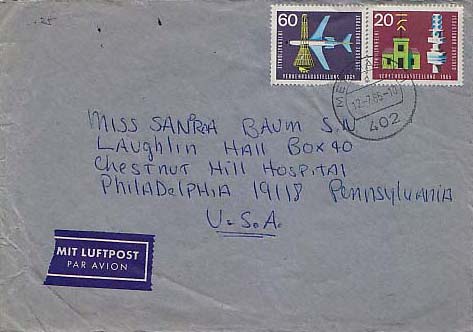 60
20
DEUTSCHE BUNDESPOST
VERKEHRSAUSSTELLUNG 1965
VERKEHRSAUSSTELLUNG 1965
402
MISS SANDRA BAUM S.N
LAUGHLIN HALL BOX 40
CHESTNUT HILL HOSPITAL
PHILADELPHIA 19118 PENNSYLVANIA
U.S.A.
MIT LUFTPOST
PAR AVION